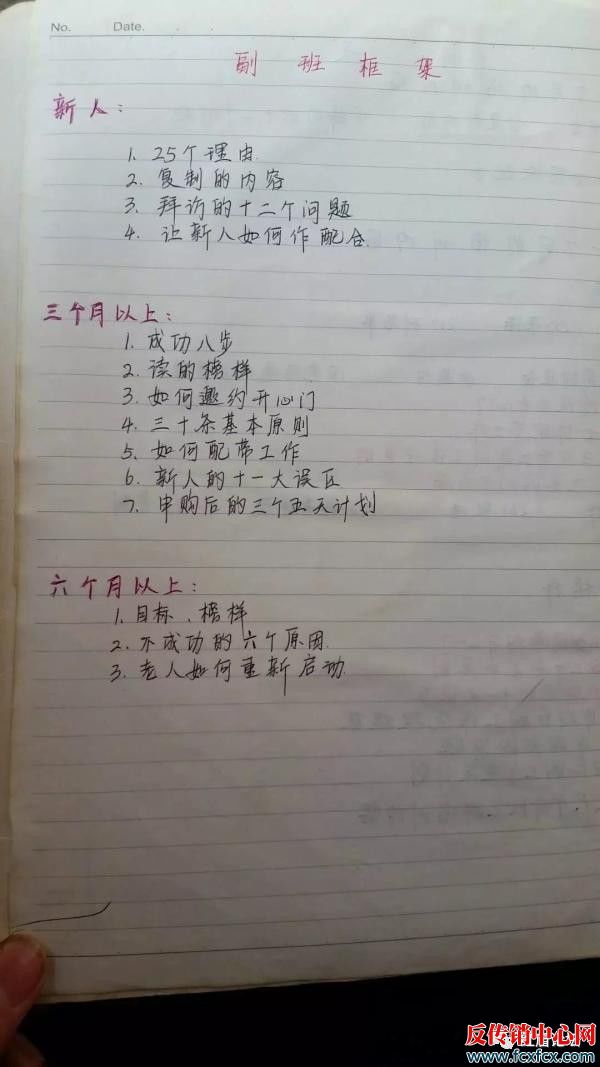 No. Date.
副班框架
新人：
1. 25个理由.
2. 复制的内容
3. 拜访的十二个问题
4. 让新人如何作配合.
三个月以上：
1. 成功八步
2. 读的榜样
3. 如何邀约开心门
4. 三十条基本原则
5. 如何配带工作
6. 新人的十一大误区
7. 申购后的三个五天计划
六个月以上：
1. 目标、榜样
2. 不成功的六个原因.
3. 老人如何重新启动.
反传销中心网
www.fcxfcx.com